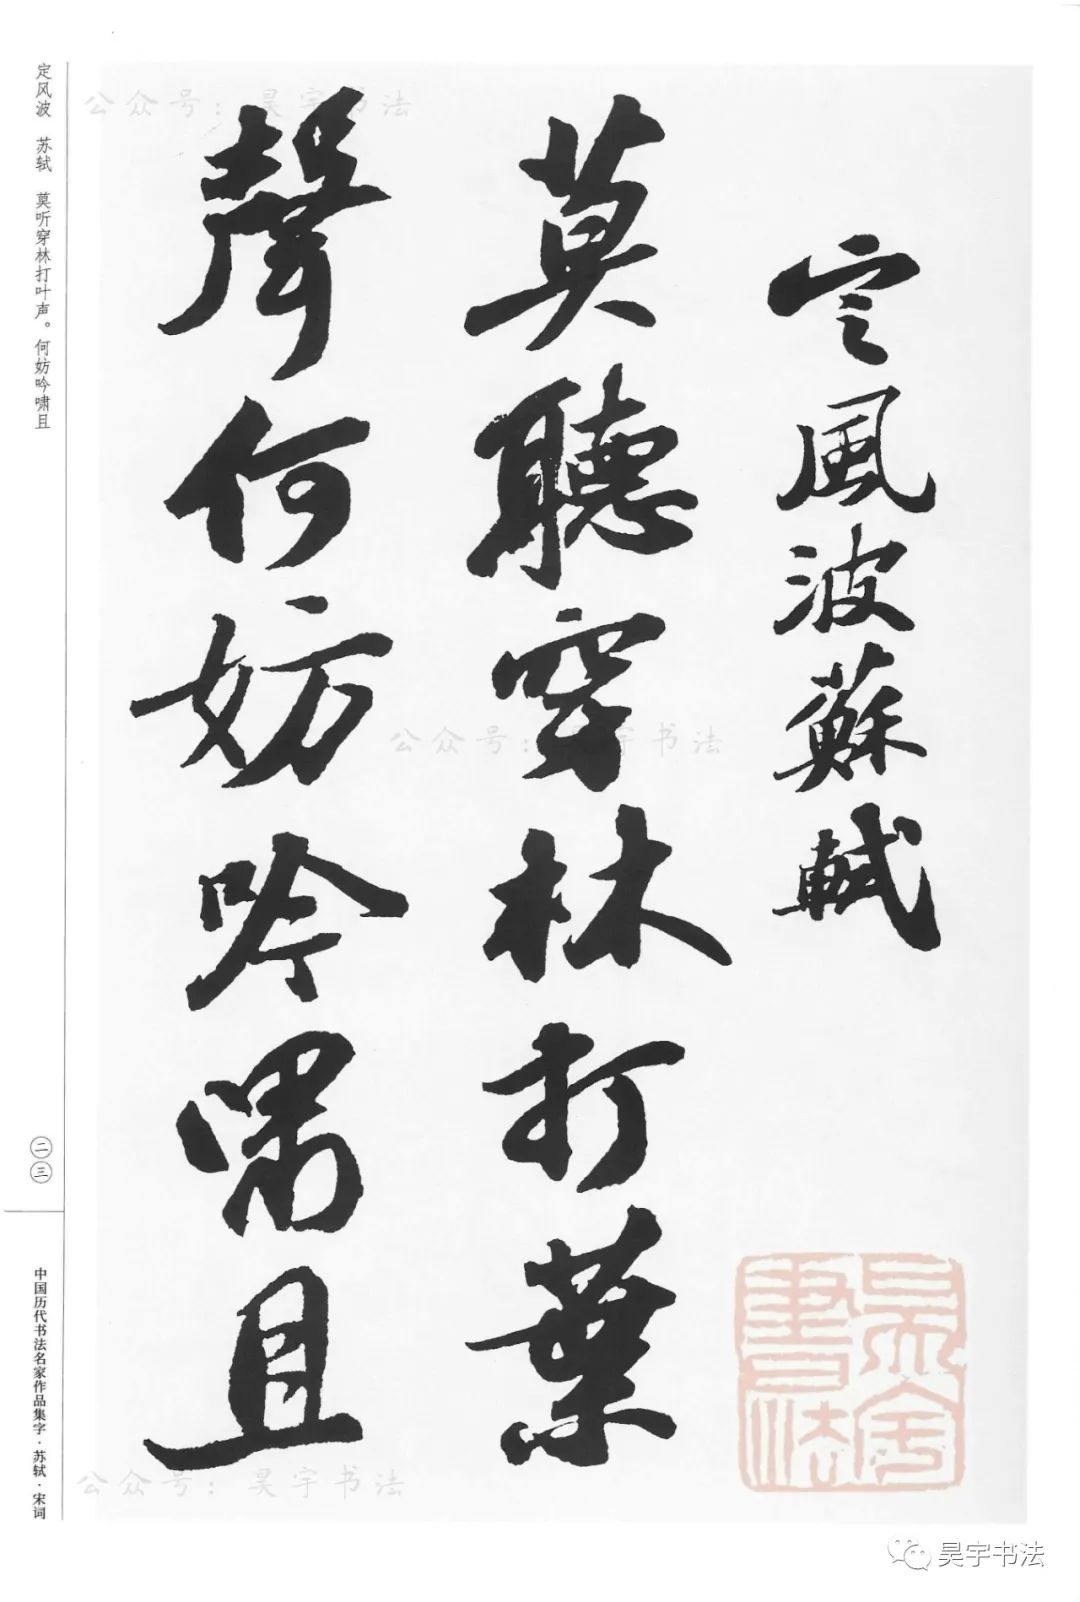 定風波蘇軾
莫聽穿林打葉
聲何妨吟嘯且
定风波 苏轼 莫听穿林打叶声。何妨吟啸且
二三
中国历代书法名家作品集字·苏轼·宋词
公众号：昊宇书法
公众号：昊宇书法
公众号：昊宇书法
昊宇書法
昊宇书法